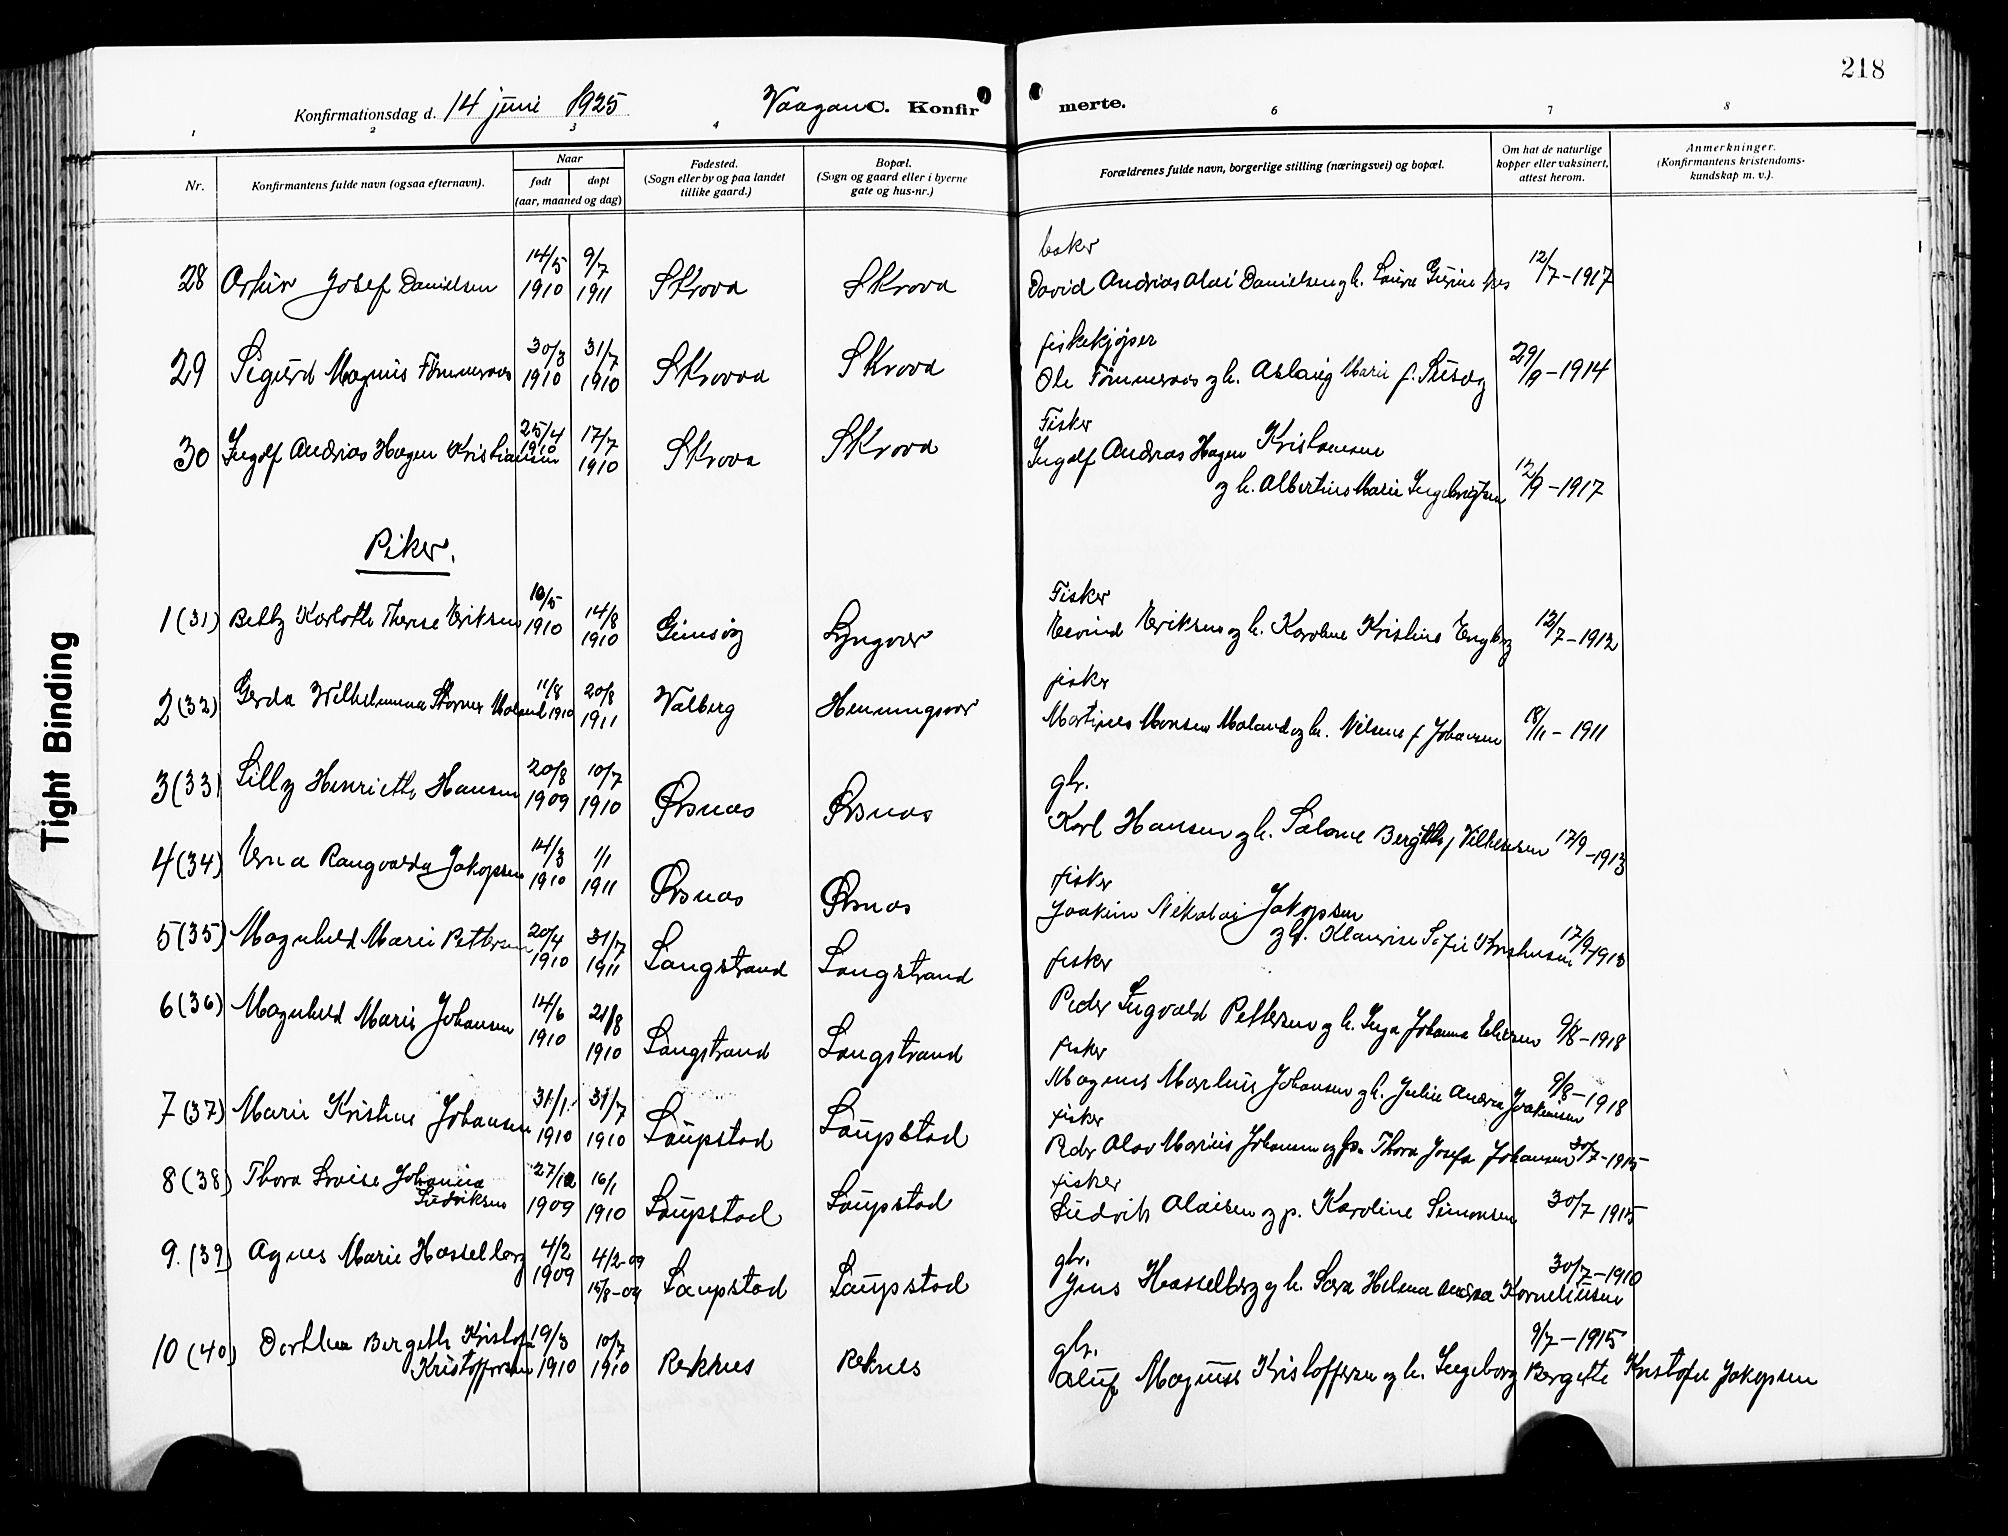 218
Konfirmationsdag d. 14 juni 1925 Vaagan C. Konfirmerte.
1 2 3 4 6 7 8
Nr. Konfirmantens fulde navn (ogsaa efternavn). Naar født døpt (aar, maaned og dag) Fødested. (Sogn eller by og paa landet tillike gaard.) Bopæl. (Sogn og gaard eller i byerne gate og hus-nr.) Forældrenes fulde navn, borgerlige stilling (næringsvei) og bopæl. Om hat de naturlige kopper eller vaksinert, attest herom. Anmerkninger. (Konfirmantens kristendomskundskap m. v.).
baker
28 Artur Josef Danielsen 14/5 1910 9/7 1911 Skrova Skrova David Andreas Olai Danielsen og h. Laura 12/7-1917
fiskekjøper
29 Sigurd Magnus Tømmeraas 30/3 1910 31/7 1910 Skrova Skrova Ole Tømmeraas og h. Aslaug Marie f. 29/9-1914
Fisker
30 Ingolf Andreas Hagen Kristiansen 25/4 1910 17/7 1910 Skrova Skrova Ingolf Andreas Hagen Kristiansen
og h. Albertine Marie Ingebrigtsen 12/9-1917
Piker.
Fisker
1 (31) Betty Karlotte Therese Eriksen 10/5 1910 14/8 1910 Gimsøy Lyngvær Eevind Eriksen og h. Karoline Kristine 12/7-1912
fisker
2 (32) Gerda Wilhelmina Moland 11/8 1910 20/8 1911 Valberg Henningsvær Martines Monsen Moland og h. Nilsine f Johansen 18/11-1911
gbr.
3 (33) Lilly Henriette Hansen 20/8 1909 10/7 1910 Ørsnes Ørsnes Karl Hansen og h. Salome Bergitte f Vilhelmsen 17/9-1913
fisker
4 (34) Erna Rangvalda Jakopsen 14/3 1910 1/1 1911 Ørsnes Ørsnes Joakim Nikolai Jakopsen
og h. Sofie 17/9 1913
fisker
5 (35) Magnhild Marie Pettersen 20/4 1910 31/7 1911 Langstrand Langstrand Peder Ingvald Pettersen og h. Inga Johanna 9/8-1918
fisker
6 (36) Magnhild Marie Johansen 14/6 1910 21/8 1910 Langstrand Langstrand Magnus Johansen og h. Julie Andrea Joakimsen 9/8-1918
fisker
7 (37) Marie Kristine Johansen 31/1 1910 31/7 1910 Laupstad Laupstad Peder Olav Marius Johansen og h. Thora Josefa Johansen 30/7-1915
fisker
8 (38) Thora Lovise Johanna Ludviksen 27/12 1909 16/1 1910 Laupstad Laupstad Ludvik Olaisen og p. Karoline Simonsen 30/7 1915
gbr.
9. (39) Agnes Marie Hasselberg 4/2 1909 4/2-09 15/8-09 Laupstad Laupstad Jens Hasselberg og h. Sara Helena Andrea Korneliusen 30/7-1910
gbr.
10 (40) Dorthea Bergette Kristofa Kristoffersen 19/3 1910 10/7 1910 Reknes Reknes Oluf Magnus Kristoffersen og h. Ingeborg Bergette Kristofa Jakopsen 9/7-1915
Tight Binding